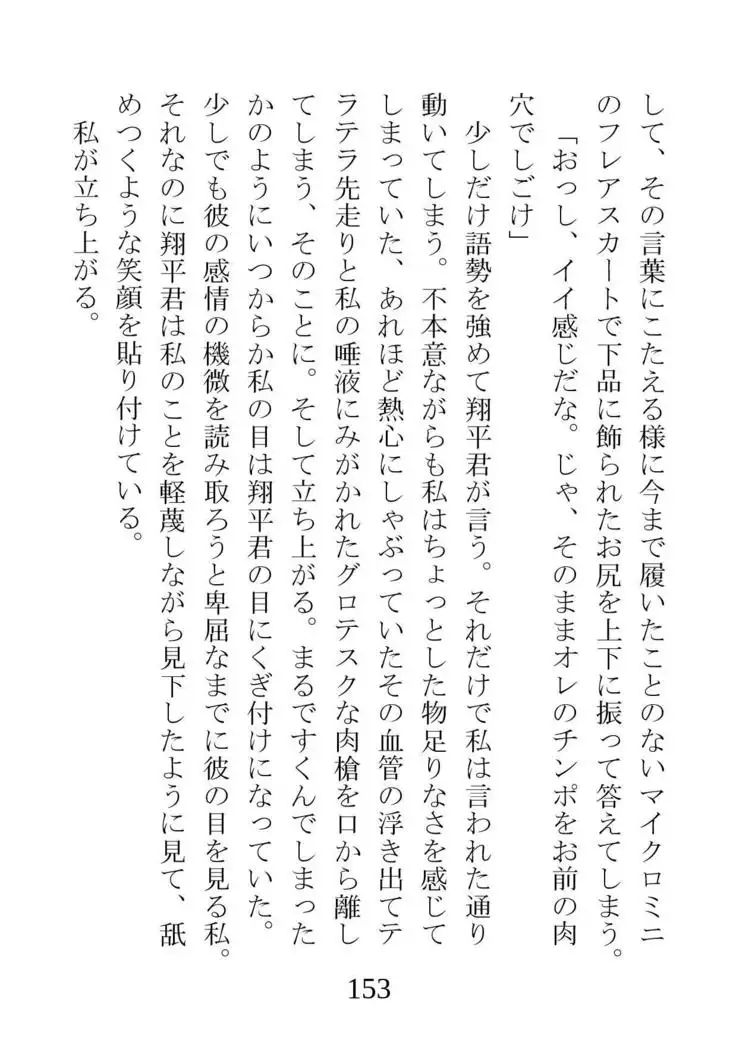 して、その言葉にこたえる様に今まで履いたことのないマイクロミニ
のフレアスカートで下品に飾られたお尻を上下に振って答えてしまう。
「おっし、イイ感じだな。じゃ、そのままオレのチンポをお前の肉
穴でしごけ」
少しだけ語勢を強めて翔平君が言う。それだけで私は言われた通り
動いてしまう。不本意ながらも私はちょっとした物足りなさを感じて
しまっていた、あれほど熱心にしゃぶっていたその血管の浮き出てテ
ラテラ先走りと私の唾液にみがかれたグロテスクな肉槍を口から離し
てしまう、そのことに。そして立ち上がる。まるですくんでしまった
かのようにいつからか私の目は翔平君の目にくぎ付けになっていた。
少しでも彼の感情の機微を読み取ろうと卑屈なまでに彼の目を見る私。
それなのに翔平君は私のことを軽蔑しながら見下したように見て、舐
めつくような笑顔を貼り付けている。
私が立ち上がる。
153